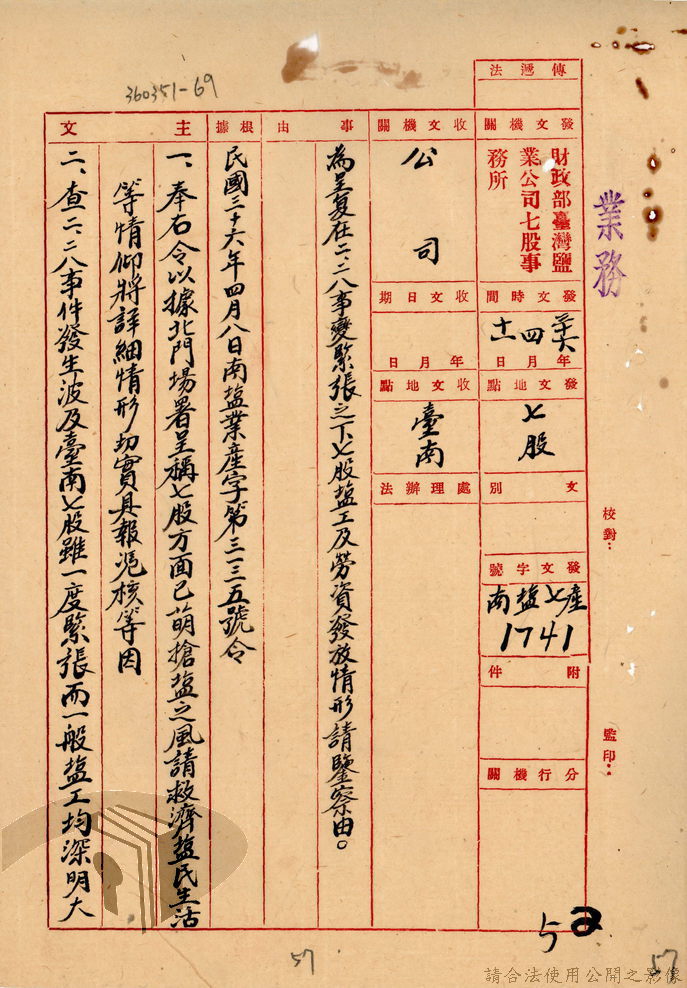 360351-69
業務
校對：
監印：
法遞傳
關機文發
財政部臺灣鹽
業公司七股事
務所
間時文發
年月日
卅六
四
十二
點地文發
七股
別文
號字文發
南塩七產
1741
件附
關機行分
關機文收
公司
期日文收
年月日
點地文收
臺南
法辦理處
由事
為呈复在二、二八事變緊張之下七股塩工及勞資發放情形請鑒察由。
據根
民國三十六年四月八日南塩業產字第三三五號令
文主
一、奉右令以據北門場署呈稱七股方面已萌搶塩之風請救濟塩民生活
等情仰將詳細情形切實具報憑核等因
二、查二、二八事件發生波及臺南七股雖一度緊張而一般塩工均深明大
52
57
57
請合法使用公開之影像